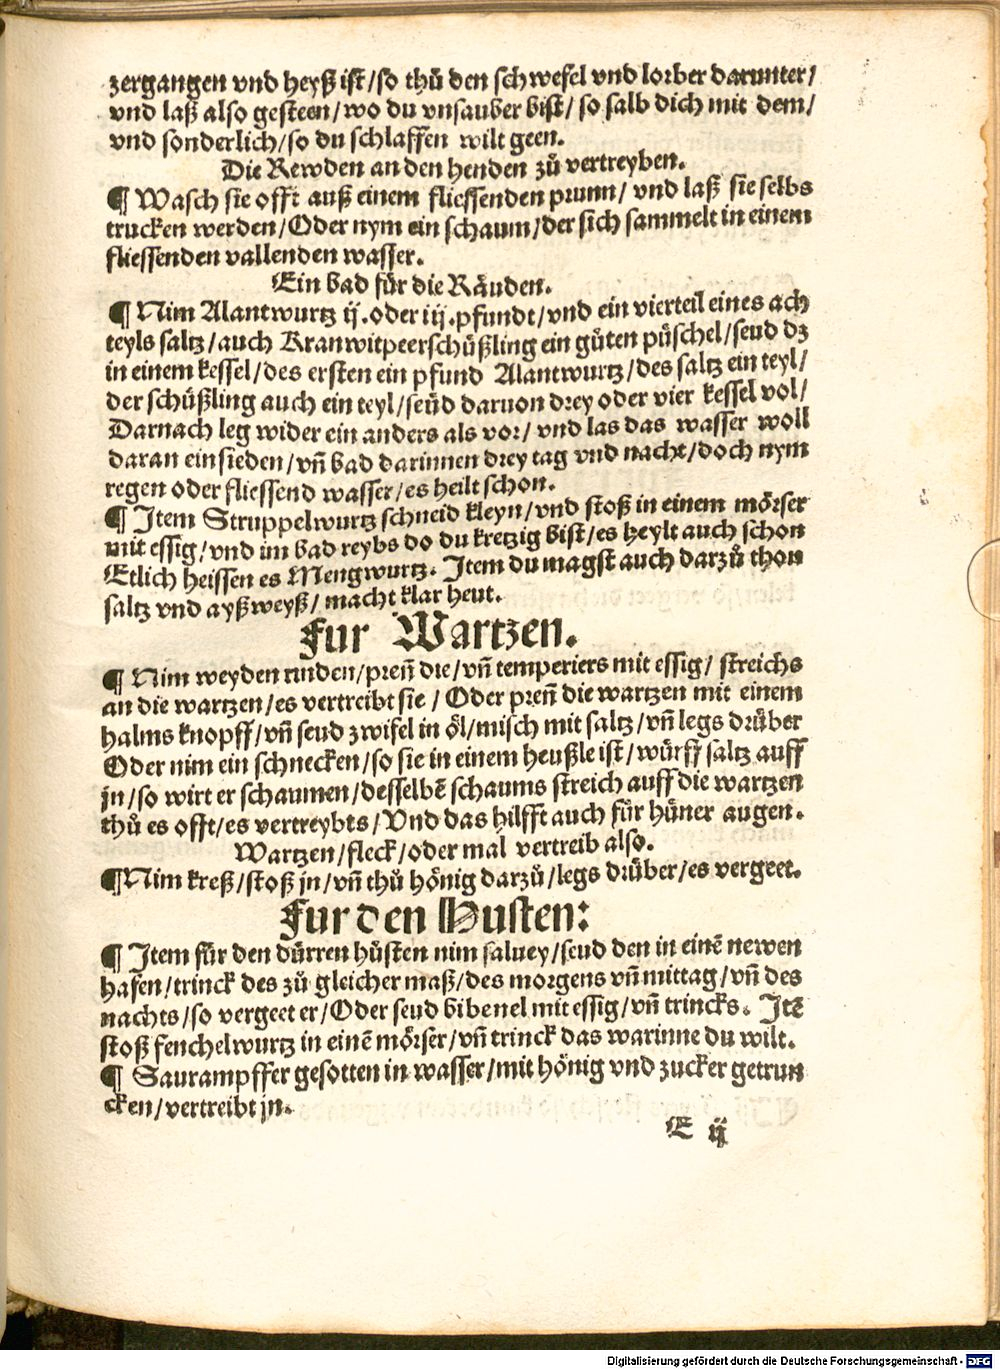 zergangen vnd heyß ist/so thů den schwefel vnd lorber darunter/
vnd laß also gesteen/wo du vnsauber bist/so salb dich mit dem/
vnd sonderlich/so du schlaffen wilt geen.
Die Rewden an den henden zů vertreyben.
¶ Wasch sie offt auß einem fliessenden prunn/ vnd laß sie selbs
trucken werden/Oder nym ein schaum/der sich sammelt in einem
fliessenden vallenden wasser.
Ein bad für die Räuden.
¶ Nim Alantwurtz ij.oder iij.pfundt/vnd ein vierteil eines ach
teyls saltz/auch Kranwitpeerschüßling ein gůten püschel/seud dz
in einem kessel/des ersten ein pfund Alantwurtz/des saltz ein teyl/
der schüßling auch ein teyl/seüd daruon drey oder vier kessel vol/
Darnach leg wider ein anders als vor/ vnd las das wasser woll
daran einsieden/vñ bad darinnen drey tag vnd nacht/doch nym
regen oder fliessend wasser/es heilt schon.
¶ Item Struppelwurtz schneid kleyn/vnd stoß in einem mörser
mit essig/vnd im bad reybs do du kretzig bist/es heylt auch schon
Etlich heissen es Mengwurtz. Item du magst auch darzů thon
saltz vnd ayßweyß/ macht klar heut.
Fur Wartzen.
¶ Nim weyden rinden/preñ die/vñ temperiers mit essig/ streichs
an die wartzen/es vertreibt sie/Oder preñ die wartzen mit einem
halms knopff/vñ seud zwifel in öl/misch mit saltz/vñ legs drüber
Oder nim ein schnecken/so sie in einem heußle ist/würff saltz auff
jn/so wirt er schaumen/desselbē schaums streich auff die wartzen
thů es offt/es vertreybts/Vnd das hilfft auch für hüner augen.
Wartzen/fleck/oder mal vertreib also.
¶Nim kreß/stoß jn/vñ thů hönig darzů/legs drüber/es vergeet.
Fur den Husten:
¶ Item für den dürren hůsten nim saluey/seud den in einē newen
hafen/trinck des zů gleicher maß/des morgens vñ mittag/vñ des
nachts/so vergeet er/Oder seud bibenel mit essig/vñ trincks. Itē
stoß fenchelwurtz in einē mörser/vñ trinck das warinne du wilt.
¶ Saurampffer gesotten in wasser/mit hönig vnd zucker getrun
cken/vertreibt jn.
E ij
Digitalisierung gefördert durch die Deutsche Forschungsgemeinschaft - DFG